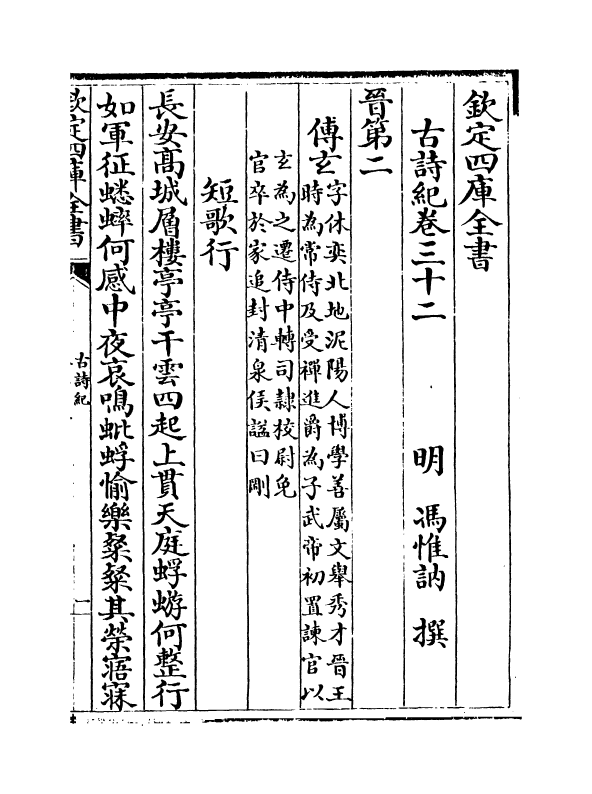 欽定四庫全書
古詩紀卷三十二 明 馮惟訥 撰
晉第二
傅玄
字休奕北地泥陽人博學善屬文舉秀才晉王
時為常侍及受禪進爵為子武帝初置諫官以
玄為之遷侍中轉司隷校尉免
官卒於家追封清泉侯諡曰剛
短歌行
長安髙城層樓亭亭干雲四起上貫天庭蜉蝣何整行
如軍征蟋蟀何感中夜哀鳴蚍蜉愉樂粲粲其榮寤寐
欽定四庫全書
古詩紀
一